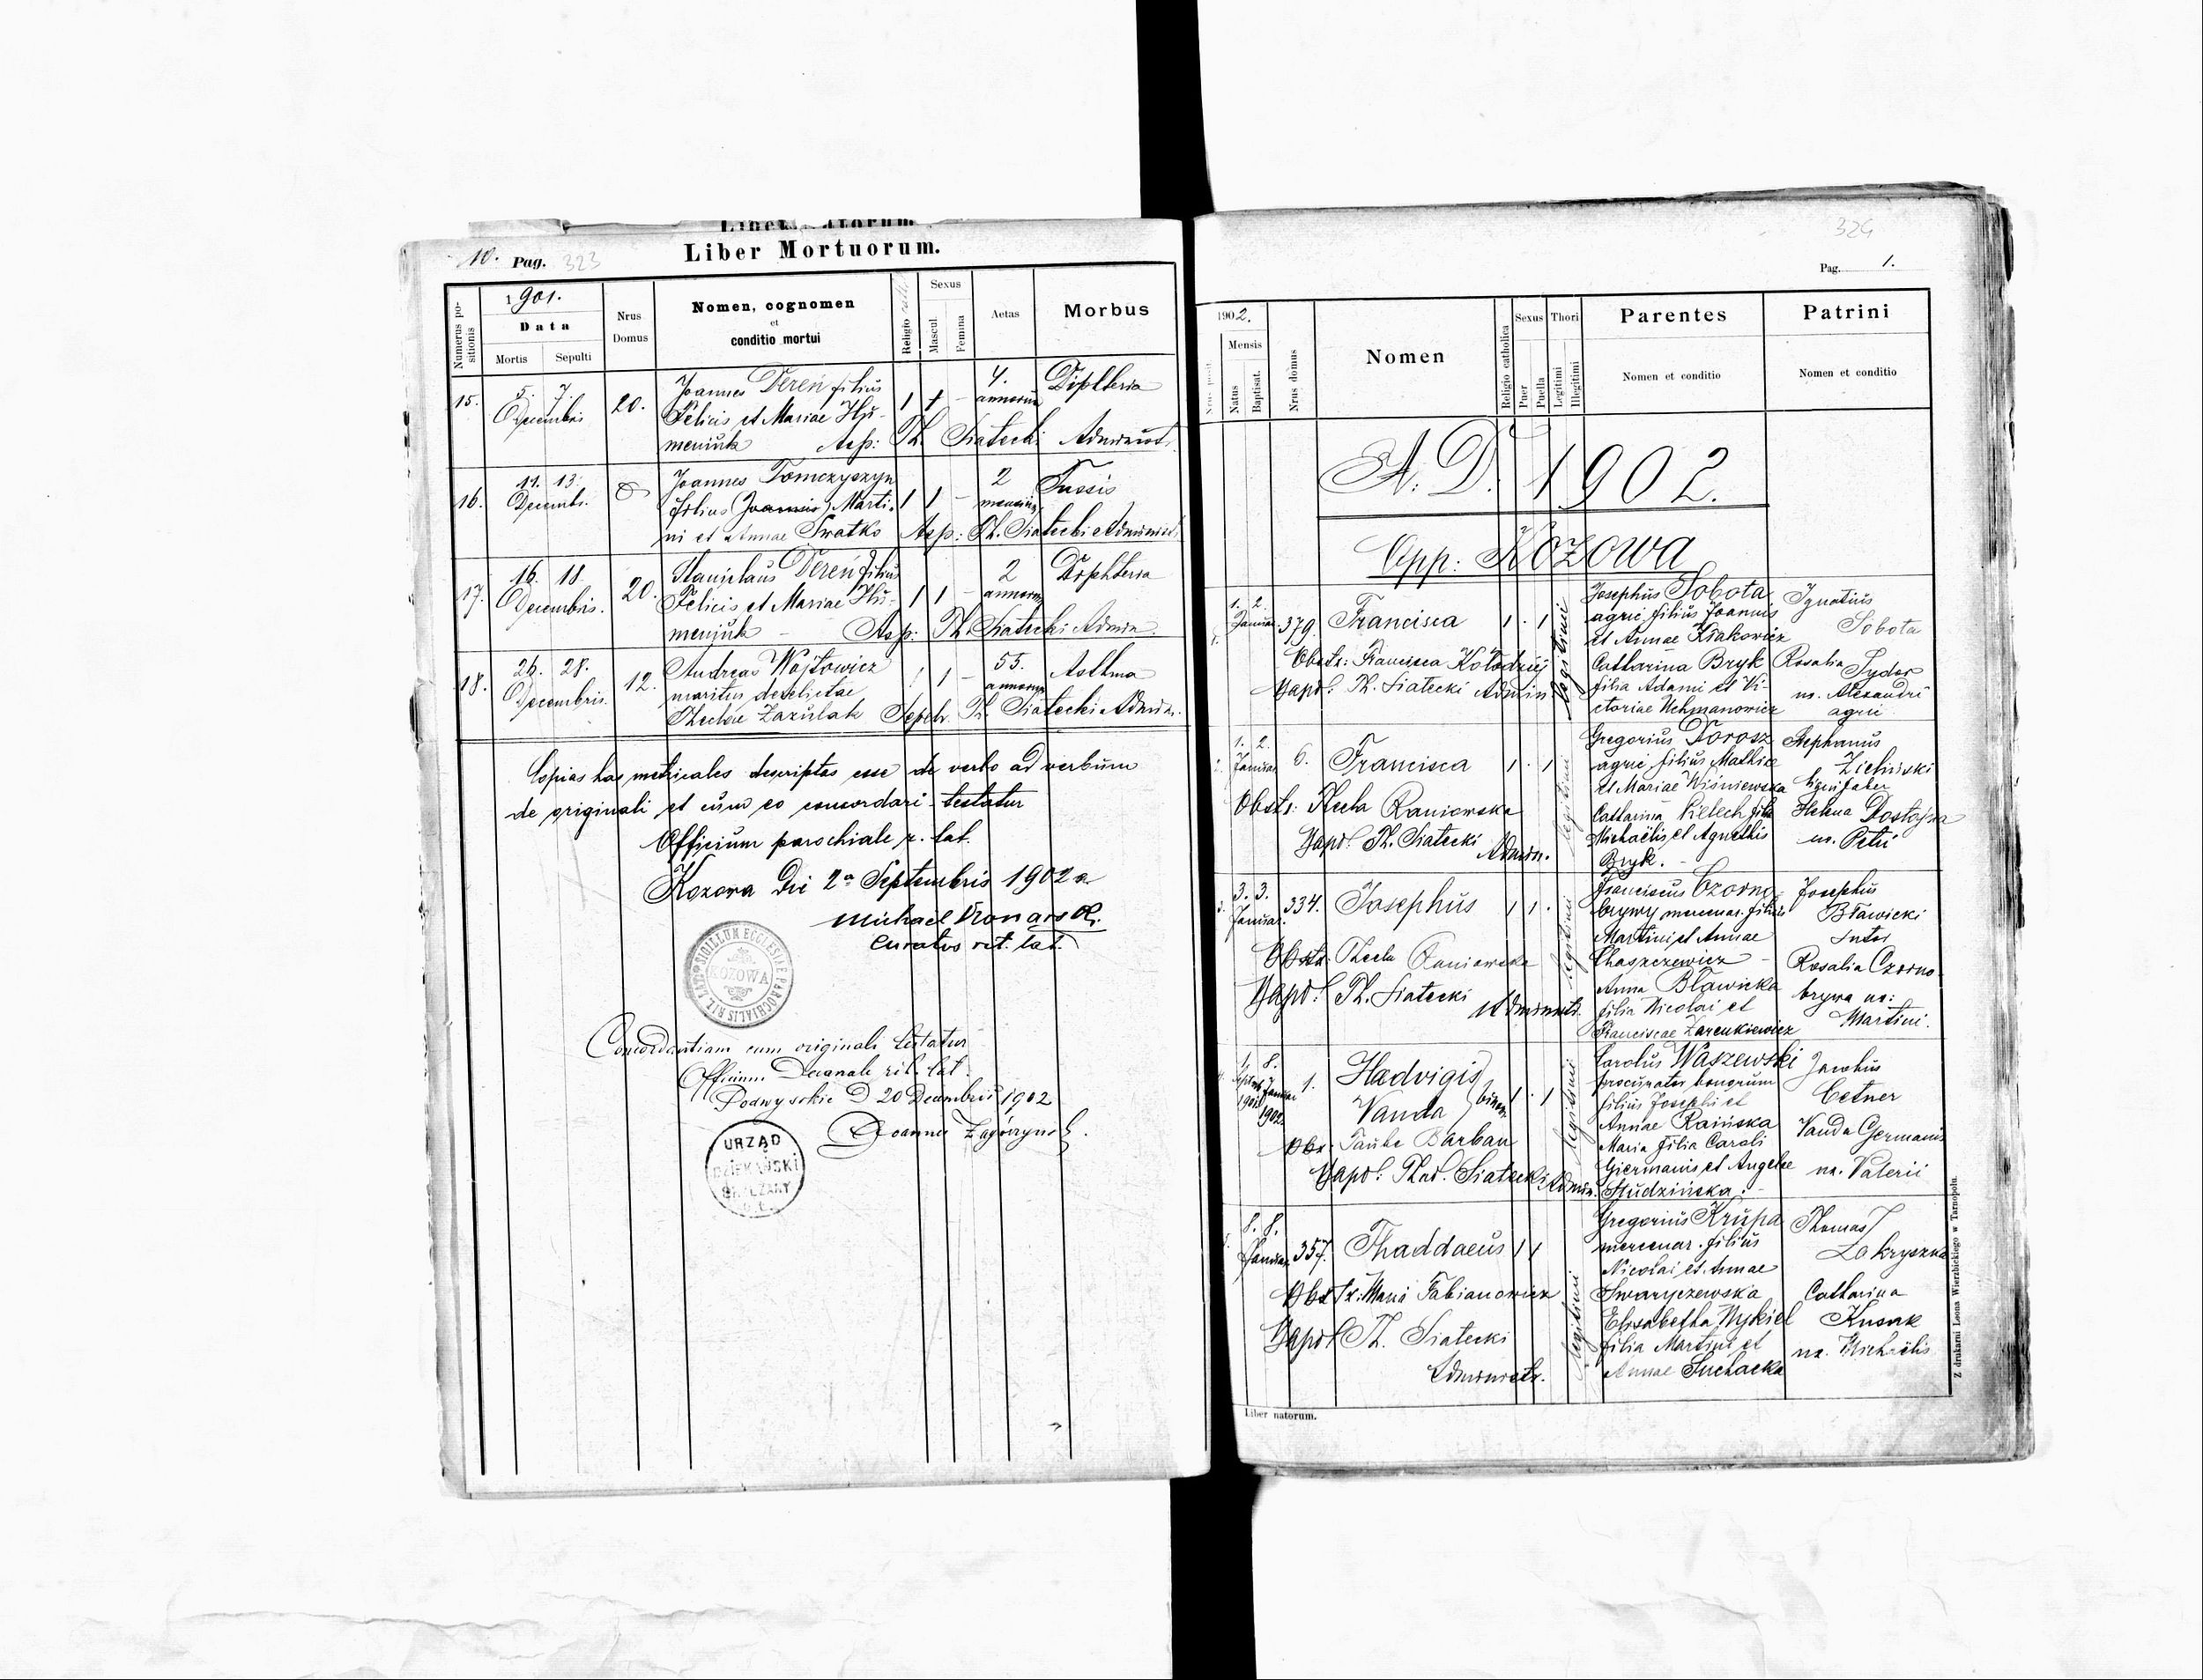 Liber Mortuorum.
10. Pag. 323
Numerus positionis
1901.
Data
Mortis Sepulti
Nrus Domus
Nomen, cognomen
et
conditio mortui
Religio
Sexus
Mascul. Femina
Aetas
Morbus
15. 5. 7. Decembris 20. Joannes Dereń filius 1 1 - 4. annorum Diphteria
Felicis et Mariae Hu-
meniuk Asp: Th. Siatecki Administ.
16. 11. 13. Decembr. Joannes Tomczyszyn 2 Tussis
filius (Joannis) Marti- 1 1 - mensium
ni et Annae Swatko Asp: Th. Siatecki Administ.
17. 16. 18. Decembris. 20. Stanislaus Dereń filius 2 Diphteria
Felicis et Mariae Hu- 1 1 - annorum
meniuk - Asp: Th. Siatecki Admin.
18. 26. 28. Decembris. 12. Andreas Wojtowicz 1 1 - 55. annorum Asthma
maritus derelictae
Theclae Zazulak Sepel. Th. Siatecki Admin.
Copias has metricales descriptas esse de verbo ad verbum
de originali et cum eo concordari testatur
Officium parochiale r. lat.
Kozowa Die 2a Septembris 1902
Michael Kronarski
Curatus rit. lat.
SIGILLUM ECCLESIAE PAROCHIALIS RIT. LAT.
KOZOWA
Concordantiam cum originali testatur
Officium Decanale rit. lat.
Podwysokie D 20 Decembris 1902
Joannes Zagórzyński
URZĄD
DZIEKAŃSKI
BRZEŻANY
324
Pag. 1.
1902.
Mensis
Natus Baptisat.
Nrus domus
Nomen
Religio catholica
Sexus
Puer Puella
Thori
Legitimi Illegitimi
Parentes
Nomen et conditio
Patrini
Nomen et conditio
A. D. 1902.
Opp: Kozowa
1. 2. Januar. 379. Francisca 1 . 1 legitimi
Obstr: Francisca Kołodziej
Bapt: Th. Siatecki Admin.
Josephus Sobota
agric. filius Joannis
et Annae Krakowicz
Catharina Bryk
filia Adami et Vi-
ctoriae Uchmanowicz
Ignatius
Sobota
Rosalia Sydor
ux. Alexandri
agric.
1. 2. Januar 6. Francisca 1 . 1 legitimi
Obstr: Thecla Raniowska
Bapt. Th. Siatecki Admin.
Gregorius Dorosz
agric. filius Mathiae
et Mariae Wiśniewska
Catharina filia
Michaëlis et Agnethis
Bryk. -
Stephanus
Zieliński
lignifaber
Helena
ux. Petri
3. 3. Januar. 334. Josephus 1 1 . legitimi
Obstr. Thecla Raniowska
Bapt. Th. Siatecki Administr.
Franciscus Czorno-
brywy mercenar. filius
Martini et Annae
Chaszczewicz -
Anna Bławicka
filia Nicolai et
Franciscae Zarenkiewicz
Josephus
Bławicki
sutor
Rosalia Czorno-
brywa ux:
Martini.
1. Septemb. 1901 8. Januar 1902. 1. Hedvigis
Vanda } binom. 1 . 1 legitimi
Obs. Taube Barban
Bapt: Thad. Siatecki Admin.
Carolus Waszewski
procurator bonorum
filius Josephi et
Annae Raińska
Maria filia Caroli
Giermanis et Angelae
Studzińska. -
Jacobus
Cetner
Vanda Germanis
ux. Valerii
8. 8. Januar. 357. Thaddaeus 1 1 legitimi
Obstr: Maria Fabianowicz
Bapt. Th. Siatecki
Administr.
Gregorius Krupa
mercenar. filius
Nicolai et Annae
Swaryczewska
Elisabetha Nykiel
filia Martini et
Annae Suchacka
Thomas
Zakryszka
Catharina
Kusak
ux. Michaëlis
Liber natorum.
Z drukarni Leona Wierzbickiego w Tarnopolu.